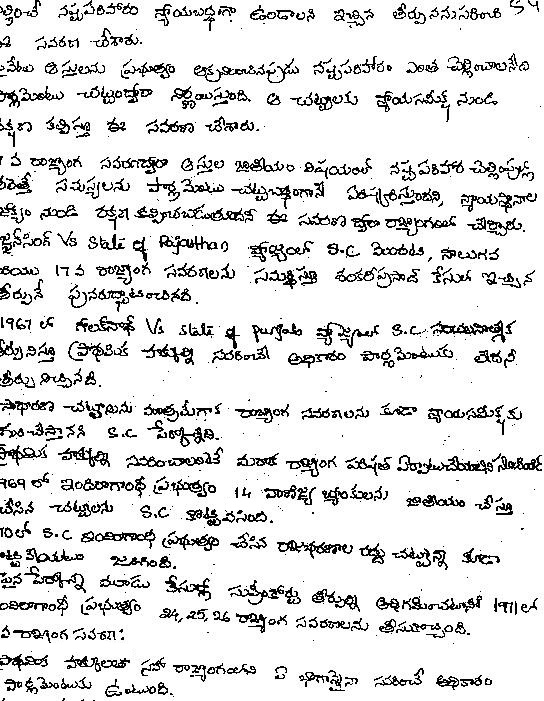 నష్టపరిహారం న్యాయబద్ధంగా ఉండాలని ఇచ్చిన తీర్పుననుసరించి 54
ఈ సవరణ చేశారు.
ఆస్తులను ప్రభుత్వం ఆక్రమించినపుడు నష్టపరిహారం ఎంత చెల్లించాలనేది
పార్లమెంటు చట్టంద్వారా నిర్ణయిస్తుంది. ఆ చట్టాలకు న్యాయసమీక్ష నుండి
రక్షణ కల్పిస్తూ ఈ సవరణ చేశారు.
వ రాజ్యాంగ సవరణద్వారా ఆస్తుల జాతీయం విషయంలో నష్టపరిహార చెల్లింపుల్లో
సమస్యలను పార్లమెంటు చట్టబద్ధంగానే పరిష్కరిస్తుందని, న్యాయస్థానాల
నుండి రక్షణ ఈ సవరణ ద్వారా రాజ్యాంగంలో చేర్చారు.
సజ్జన్‌సింగ్ Vs State of Rajasthan వ్యాజ్యంలో S.C మొదటి, నాలుగవ
మరియు 17 వ రాజ్యాంగ సవరణలను సమర్థిస్తూ శంకరీప్రసాద్ కేసులో ఇచ్చిన
తీర్పునే పునరుద్ఘాటించినది.
1967 లో గోలక్‌నాథ్ Vs State of Punjab వ్యాజ్యంలో S.C సంచలనాత్మక
తీర్పునిస్తూ ప్రాథమిక హక్కుల్ని సవరించే అధికారం పార్లమెంటుకు లేదని
తీర్పు నిచ్చినది.
సాధారణ చట్టాలను మాత్రమేగాక రాజ్యాంగ సవరణలను కూడా న్యాయసమీక్షకు
గురిచేస్తానని S.C పేర్కొన్నది.
ప్రాథమిక హక్కుల్ని సవరించాలంటే మరొక రాజ్యాంగ పరిషత్ ఏర్పాటుచేయాలని
1969 లో ఇందిరాగాంధీ ప్రభుత్వం 14 వాణిజ్య బ్యాంకులను జాతీయం చేస్తూ
చేసిన చట్టాలను S.C కొట్టివేసింది.
70లో S.C ఇందిరాగాంధీ ప్రభుత్వం చేసిన రాజభరణాల రద్దు చట్టాన్ని కూడా
కొట్టివేయటం జరిగింది.
పైన పేర్కొన్న మూడు కేసుల్లో సుప్రీంకోర్టు తీర్పుల్ని అధిగమించటానికి 1971లో
ఇందిరాగాంధీ ప్రభుత్వం 24, 25, 26 రాజ్యాంగ సవరణలను తీసుకొచ్చింది.
వ రాజ్యాంగ సవరణ:
ప్రాథమిక హక్కులతో సహా రాజ్యాంగంలోని ఏ భాగాన్నైనా సవరించే అధికారం
పార్లమెంటుకు ఉంటుంది.